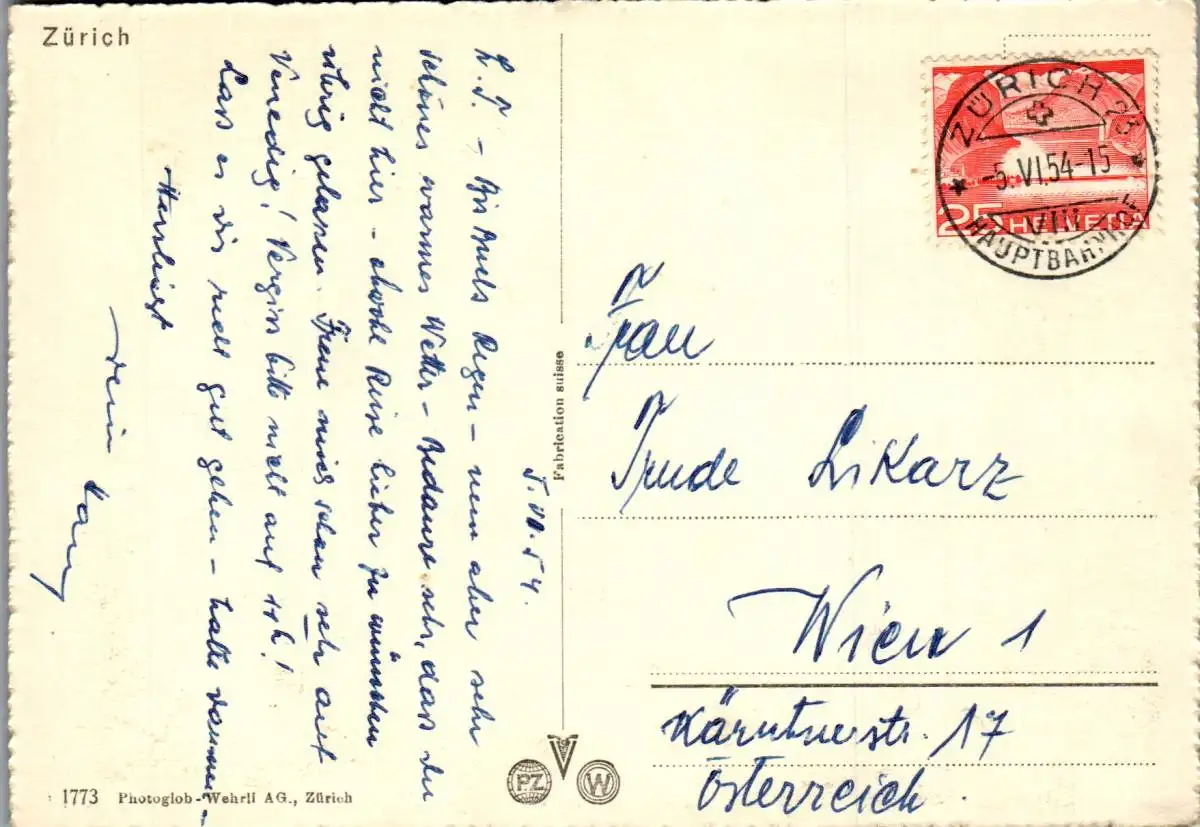 Zürich
5.VI.54.
L. T. – Bis Buchs Regen – nun aber sehr
schönes warmes Wetter – Bedaure sehr, dass du
nicht hier – Reise lieber zu wünschen
übrig gelassen. Freue mich schon sehr auf
Venedig! Vergiss bitte nicht auf 11h!
Lass es dir recht gut gehen –
Herzlichst
dein
Fabrication suisse
ZÜRICH 23
-5.VI.54-15
VIII
HAUPTBAHNHOF
25 HELVETIA
Frau
Trude Likarz
Wien 1
Kärntnerstr. 17
Österreich.
PZ W
1773 Photoglob-Wehrli AG., Zürich